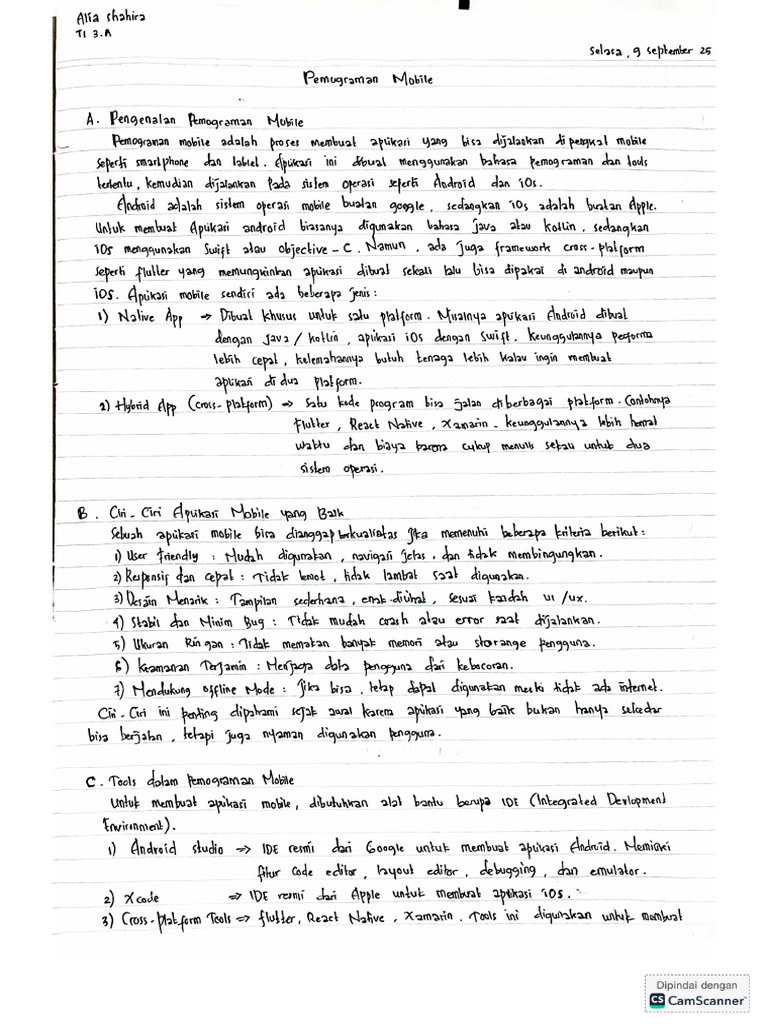 Alfa Shahira
TI 3.A
Selasa, 9 September 25
Pemograman Mobile
A. Pengenalan Pemograman Mobile
Pemograman mobile adalah proses membuat aplikasi yang bisa dijalankan di pengkat mobile
seperti smartphone dan tablet. Aplikasi ini dibuat menggunakan bahasa pemograman dan tools
tertentu, kemudian dijalankan pada sistem operasi seperti Android dan iOs.
Android adalah sistem operasi mobile buatan google, sedangkan iOs adalah buatan Apple.
Untuk membuat Aplikasi android biasanya digunakan bahasa java atau kotlin, sedangkan
iOs menggunakan Swift atau objective-C. Namun, ada juga framework cross-platform
seperti flutter yang memungkinkan aplikasi dibuat sekali lalu bisa dipakai di android maupun
iOS. Aplikasi mobile sendiri ada beberapa jenis:
1) Native App → Dibuat khusus untuk satu platform. Misalnya aplikasi Android dibuat
dengan java/kotlin, aplikasi iOs dengan Swift. keunggulannya performa
lebih cepat, kelemahannya butuh tenaga lebih kalau ingin membuat
aplikasi di dua platform.
2) Hybrid App (cross-platform) → Satu kode program bisa jalan diberbagai platform. Contohnya
flutter, React Native, Xamarin. keunggulannya lebih hemat
waktu dan biaya karena cukup menulis sekali untuk dua
sistem operasi.
B. Ciri-Ciri Aplikasi Mobile yang Baik
Sebuah aplikasi mobile bisa dianggap berkualitas jika memenuhi beberapa kriteria berikut:
1) User friendly : Mudah digunakan, navigasi jelas, dan tidak membingungkan.
2) Responsif dan cepat : Tidak lemot, tidak lambat saat digunakan.
3) Desain Menarik : Tampilan sederhana, enak dilihat, sesuai kaidah UI/UX.
4) Stabil dan Minim Bug : Tidak mudah crash atau error saat dijalankan.
5) Ukuran Ringan : Tidak memakan banyak memori atau storange pengguna.
6) Keamanan Terjamin : Menjaga data pengguna dari kebocoran.
7) Mendukung offline Mode : Jika bisa, tetap dapat digunakan meski tidak ada internet.
Ciri-Ciri ini penting dipahami sejak awal karena aplikasi yang baik bukan hanya sekedar
bisa berjalan, tetapi juga nyaman digunakan pengguna.
C. Tools dalam Pemograman Mobile
Untuk membuat aplikasi mobile, dibutuhkan alat bantu berupa IDE (Integrated Devlopment
Envirinment).
1) Android studio → IDE resmi dari Google untuk membuat aplikasi Android. Memiliki
fitur code editor, layout editor, debugging, dan emulator.
2) Xcode → IDE resmi dari Apple untuk membuat aplikasi iOS.
3) Cross-platform Tools → flutter, React Native, Xamarin. Tools ini digunakan untuk membuat
Dipindai dengan
CS CamScanner